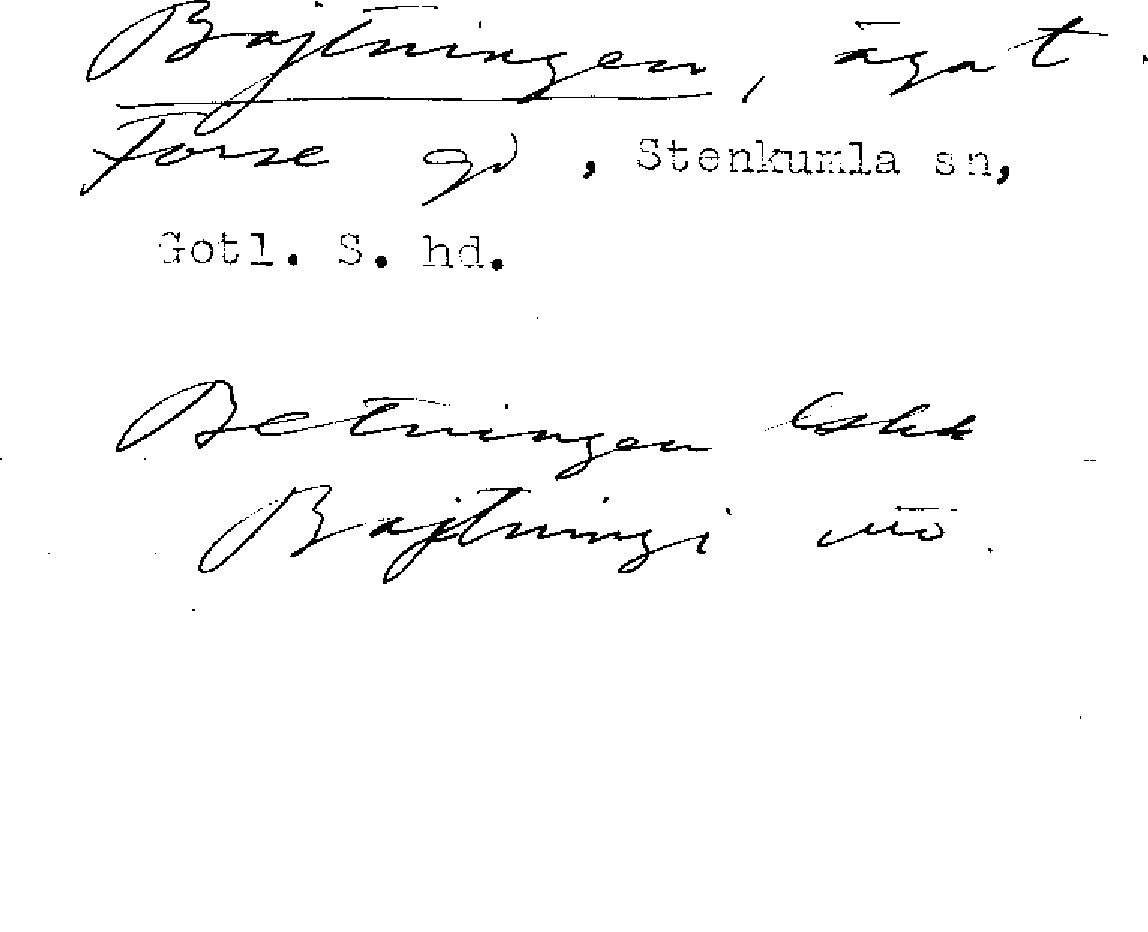 Bajtningen, ägat.
Forse gd, Stenkumla sn,
Gotl. S. hd.
Betningen
Bajtningi